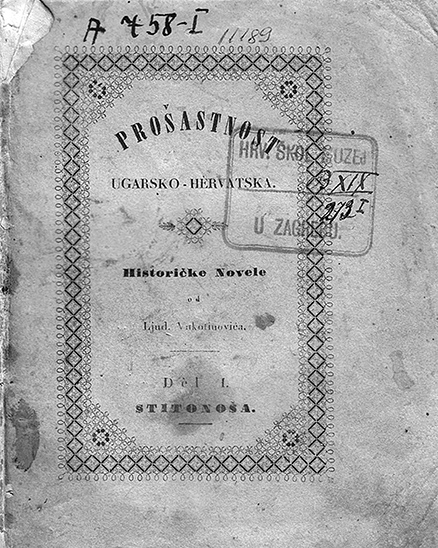 A 758-I
11189
PROŠASTNOST
UGARSKO-HĖRVATSKA.
HRV. ŠKOL. MUZEJ
D XIX
273 I
U ZAGREBU.
Historičke Novele
od
Ljud. Vukotinovića.
Dėl I.
STITONOŠA.